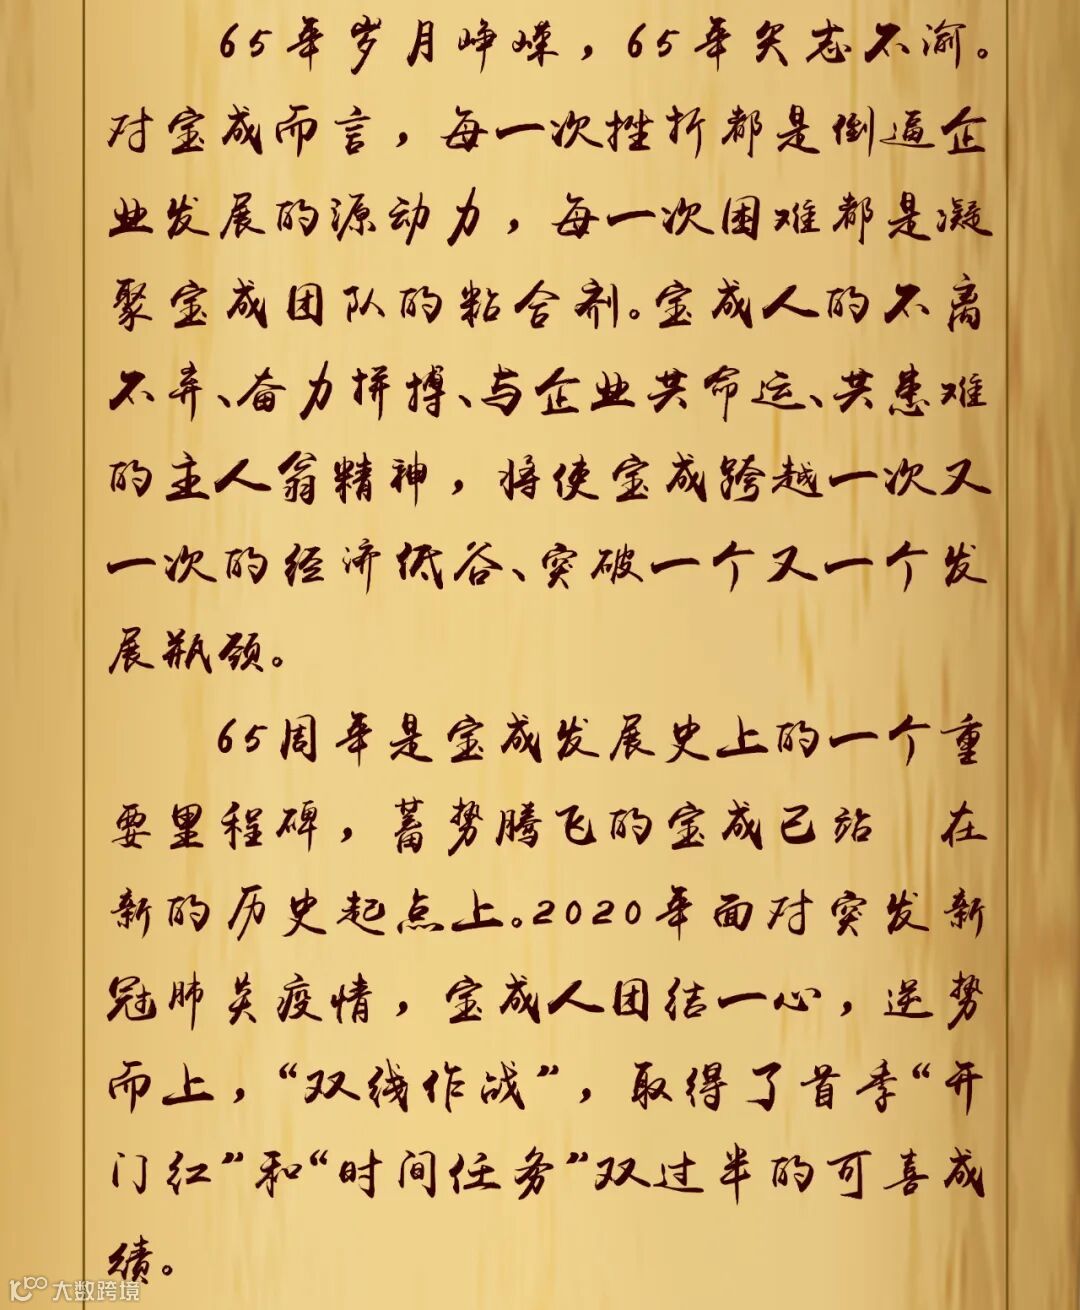 65年岁月峥嵘，65年矢志不渝。
对宝成而言，每一次挫折都是倒逼企
业发展的源动力，每一次困难都是凝
聚宝成团队的粘合剂。宝成人的不离
不弃、奋力拼搏、与企业共命运、共患难
的主人翁精神，将使宝成跨越一次又
一次的经济低谷、突破一个又一个发
展瓶颈。
65周年是宝成发展史上的一个重
要里程碑，蓄势腾飞的宝成已站 在
新的历史起点上。2020年面对突发新
冠肺炎疫情，宝成人团结一心，逆势
而上，“双线作战”，取得了首季“开
门红”和“时间任务”双过半的可喜成
绩。
大数跨境